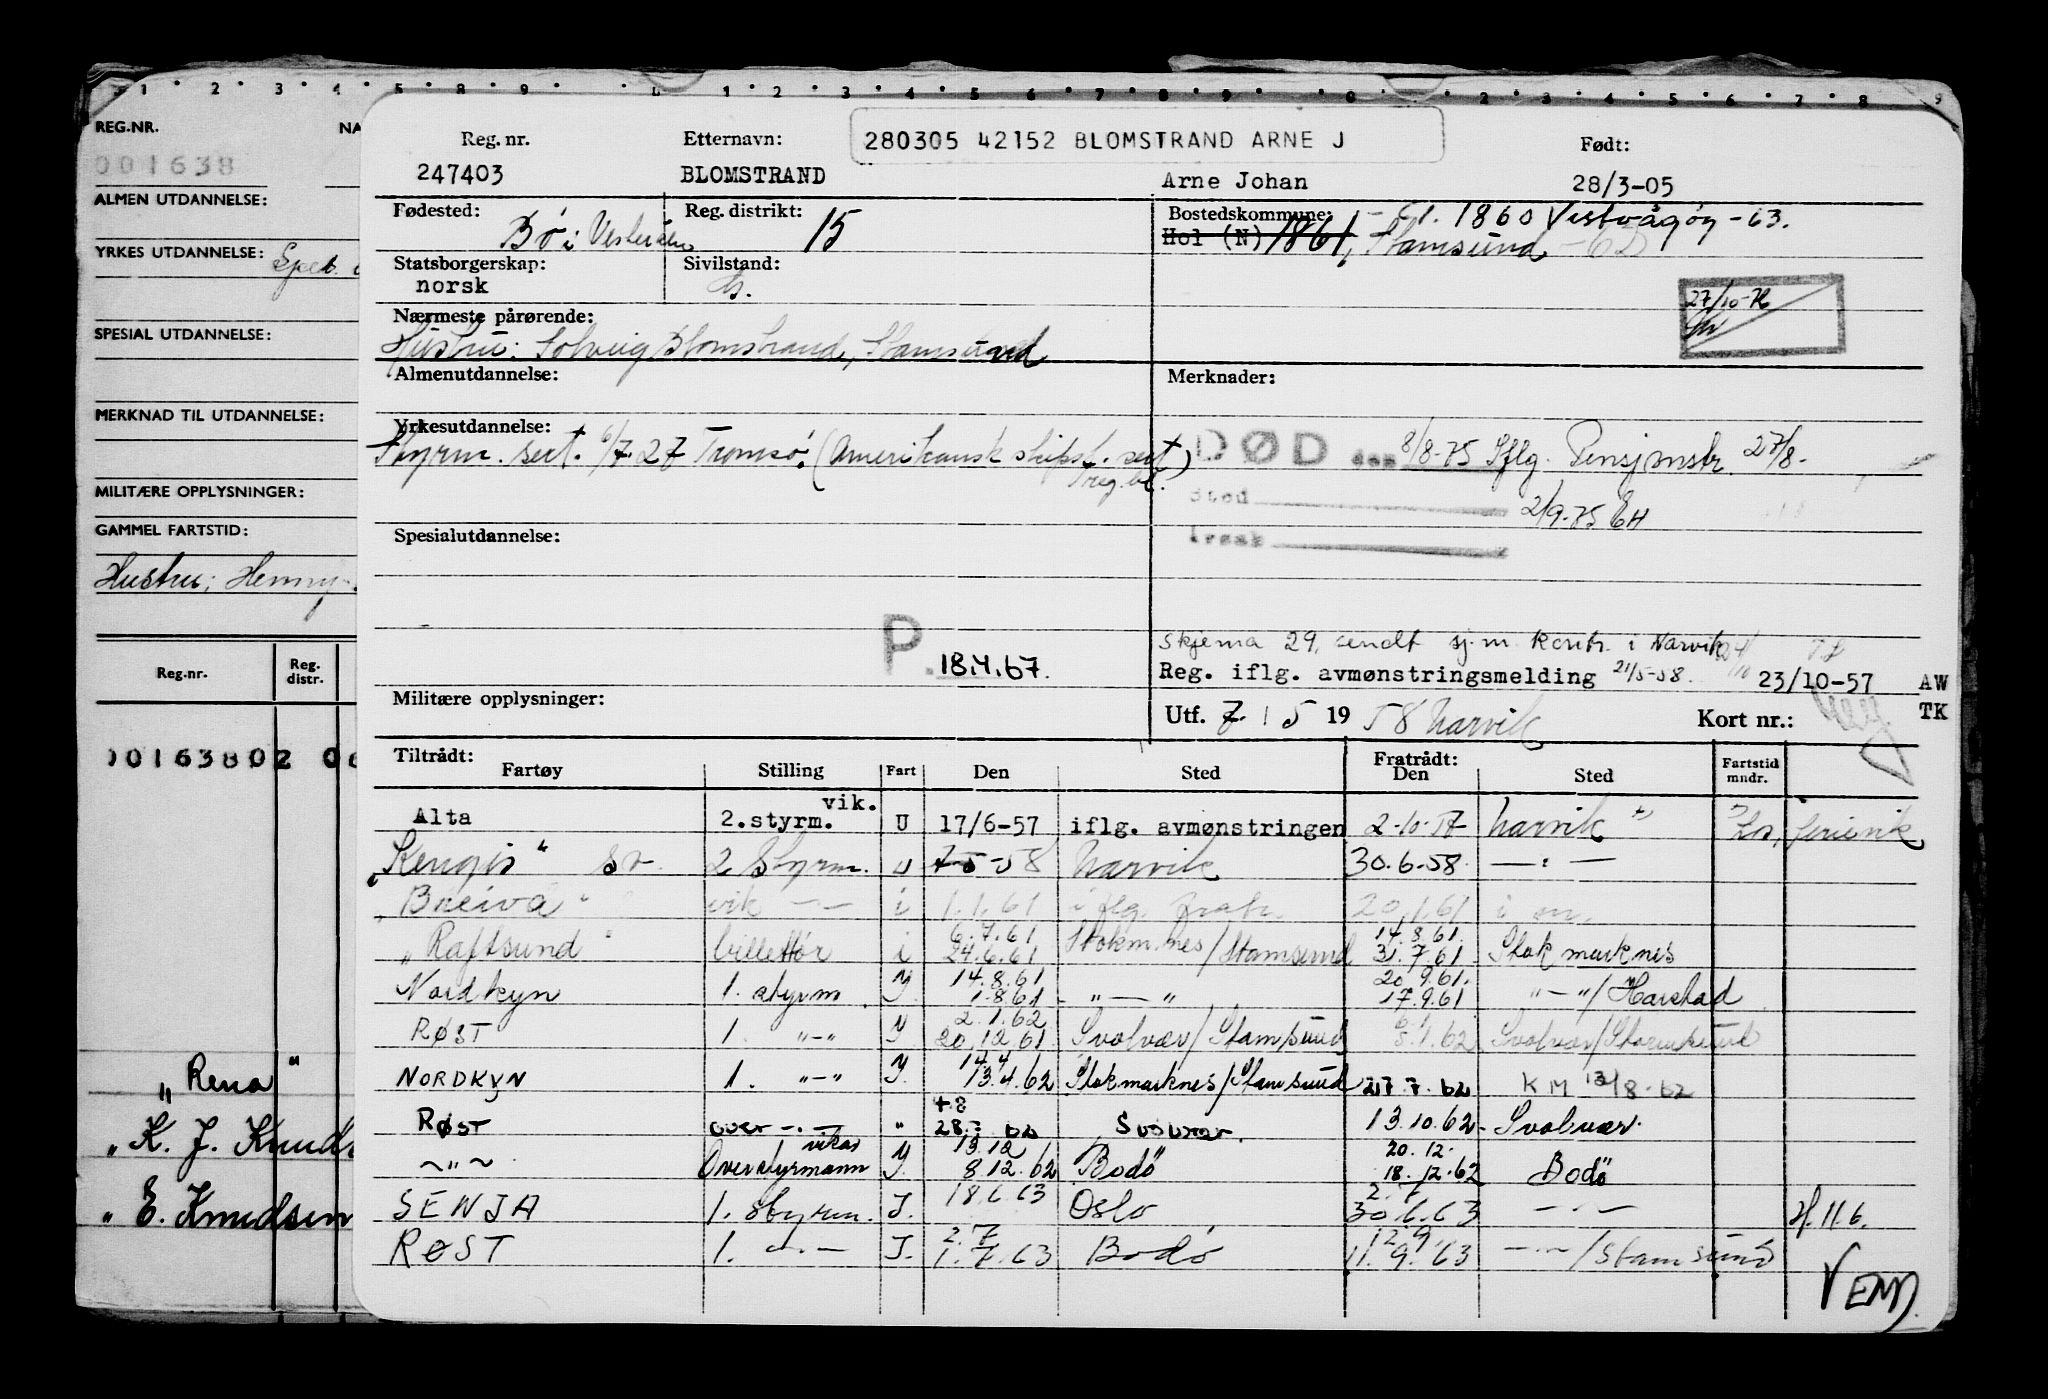 REG.NR.
001638
ALMEN UTDANNELSE:
YRKES UTDANNELSE:
SPESIAL UTDANNELSE:
MERKNAD TIL UTDANNELSE:
MILITÆRE OPPLYSNINGER:
GAMMEL FARTSTID:
Hustru: Henny
Reg.nr. Reg. distr.
00163802
"Rena"
"K. J. Knuds
"E. Knudsen
Reg. nr. Etternavn: 280305 42152 BLOMSTRAND ARNE J Født:
247403 BLOMSTRAND Arne Johan 28/3-05
Fødested: Reg. distrikt: Bostedskommune:
Bø i Vesterålen 15 Hol (N) 1861, Stamsund -62 1860 Vestvågøy -63.
Statsborgerskap: Sivilstand:
norsk G.
27/10-76
Nærmeste pårørende:
Hustru: Solveig Blomstrand, Stamsund
Almenutdannelse: Merknader:
Yrkesutdannelse:
Styrm. sert. 6/7.27 Tromsø. (Amerikansk skipsf. sert
DØD den 8/8-75 Iflg. Pensjonstr. 27/8-
Sted
2/9-75 EH
Årsak
Spesialutdannelse:
P. 18.4.67.
skjema 29, sendt sj.m. kontr. i Narvik
Reg. iflg. avmønstringsmelding 21/5-58. 23/10-57 AW
Militære opplysninger:
Utf. 7/5 1958 Narvik Kort nr.: TK
Tiltrådt: Fratrådt:
Fartøy Stilling Fart Den Sted Den Sted Fartstid mndr.
Alta 2.styrm. vik. U 17/6-57 iflg. avmønstringen 2-10-57 Narvik
"Kengis" 2 Styrm. u 7-5-58 Narvik 30.6.58 —:—
"Breiva" vik —"— i 1.1.61 iflg. fratr. 20.1.61
"Raftsund" billettør i 6.7.61 24.6.61 Stokm.nes/Stamsund 14.8.61. 31.7.61 Stokmarknes
Nordkyn 1. styrm. I. 14.8.61 1.8.61 —"— 20.9.61. 17.9.61 "—"/Harstad
RØST 1. "—" I 2.1.62 20.12.61 Svolvær/Stamsund 5.1.62 Svolvær/Stamsund
NORDKYN 1. "—" I. 14.4 13.4.62 Stokmarknes/Stamsund 27.7.62 KM 13/8-62
RØST over —.— " 28.7.62 Svolvær. 13.10.62 Svolvær.
~"~ Overstyrmann vikar I. 13.12 8.12.62 Bodø 20.12. 18.12.62 Bodø
SENJA 1. styrm. I. 18.6.63 Oslo 2.7 30.6.63 —.— H. 11.6.
RØST 1. —.— I. 2.7 1.7.63 Bodø 12.9 11.9.63 —"—/Stamsund
VEND.